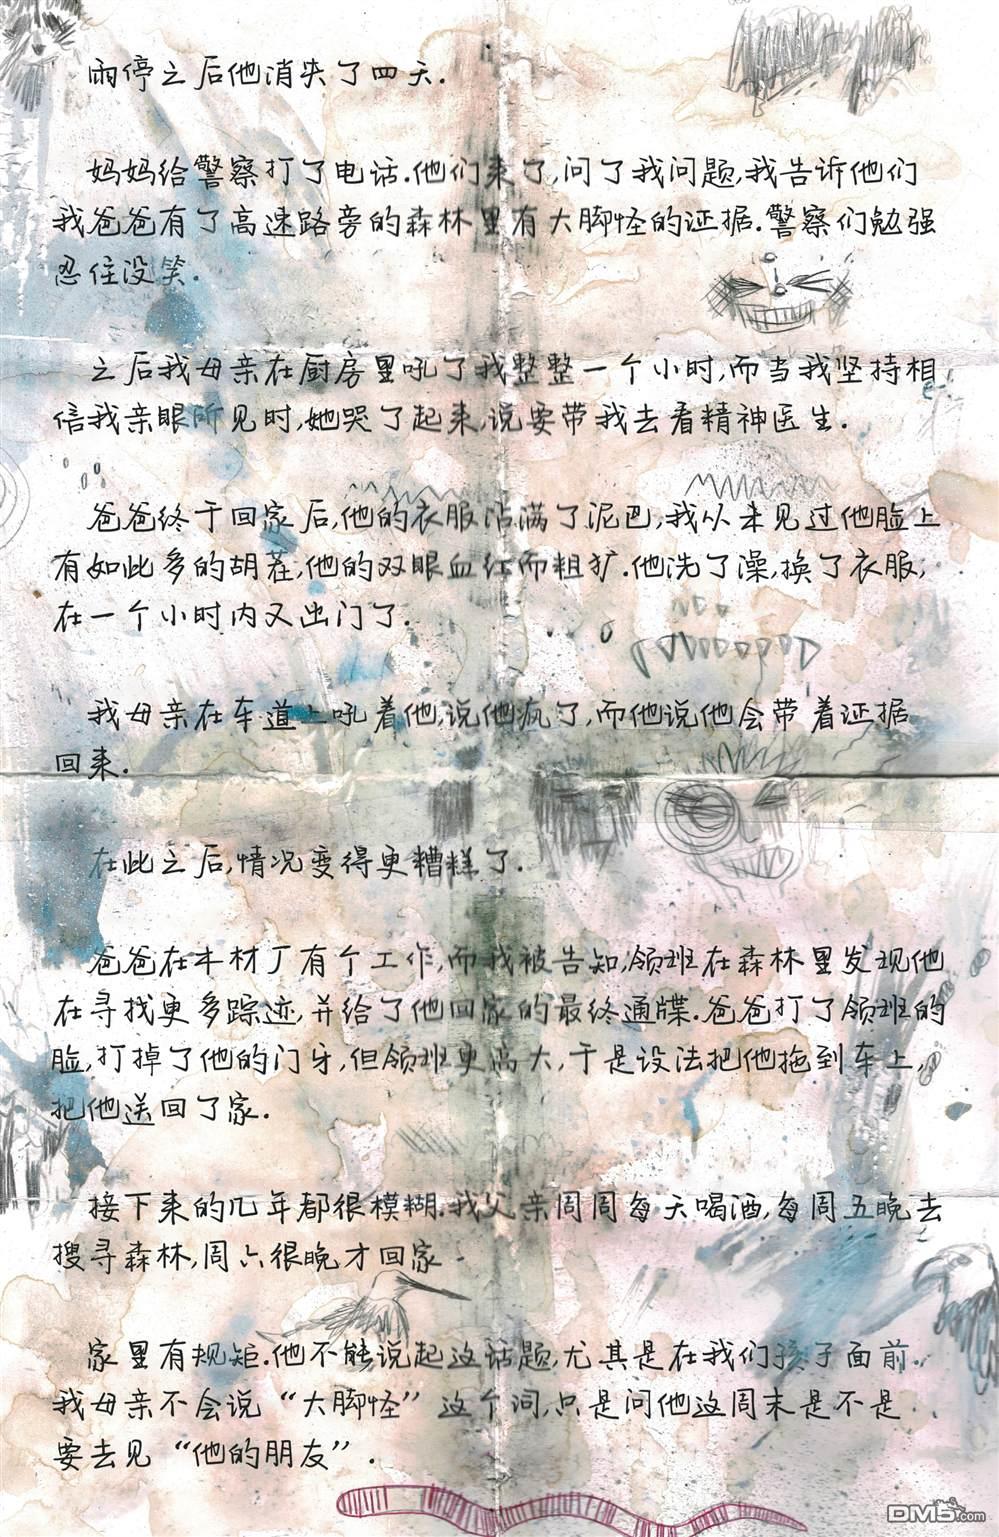 雨停之后他消失了四天.
妈妈给警察打了电话.他们来了,问了我问题,我告诉他们
我爸爸有了高速路旁的森林里有大脚怪的证据.警察们勉强
忍住没笑.
之后我母亲在厨房里吼了我整整一个小时,而当我坚持相
信我亲眼所见时,她哭了起来,说要带我去看精神医生.
爸爸终于回家后,他的衣服沾满了泥巴,我从未见过他脸上
有如此多的胡茬,他的双眼血红而粗犷.他洗了澡,换了衣服,
在一个小时内又出门了.
我母亲在车道上吼着他,说他疯了,而他说他会带着证据
回来.
在此之后,情况变得更糟糕了.
爸爸在木材厂有个工作,而我被告知,领班在森林里发现他
在寻找更多踪迹,并给了他回家的最终通牒.爸爸打了领班的
脸,打掉了他的门牙,但领班更高大,于是设法把他拖到车上,
把他送回了家.
接下来的几年都很模糊.我父亲周周每天喝酒,每周五晚去
搜寻森林,周六很晚才回家.
家里有规矩.他不能说起这话题,尤其是在我们孩子面前.
我母亲不会说“大脚怪”这个词,只是问他这周末是不是
要去见“他的朋友”.
DM5.com